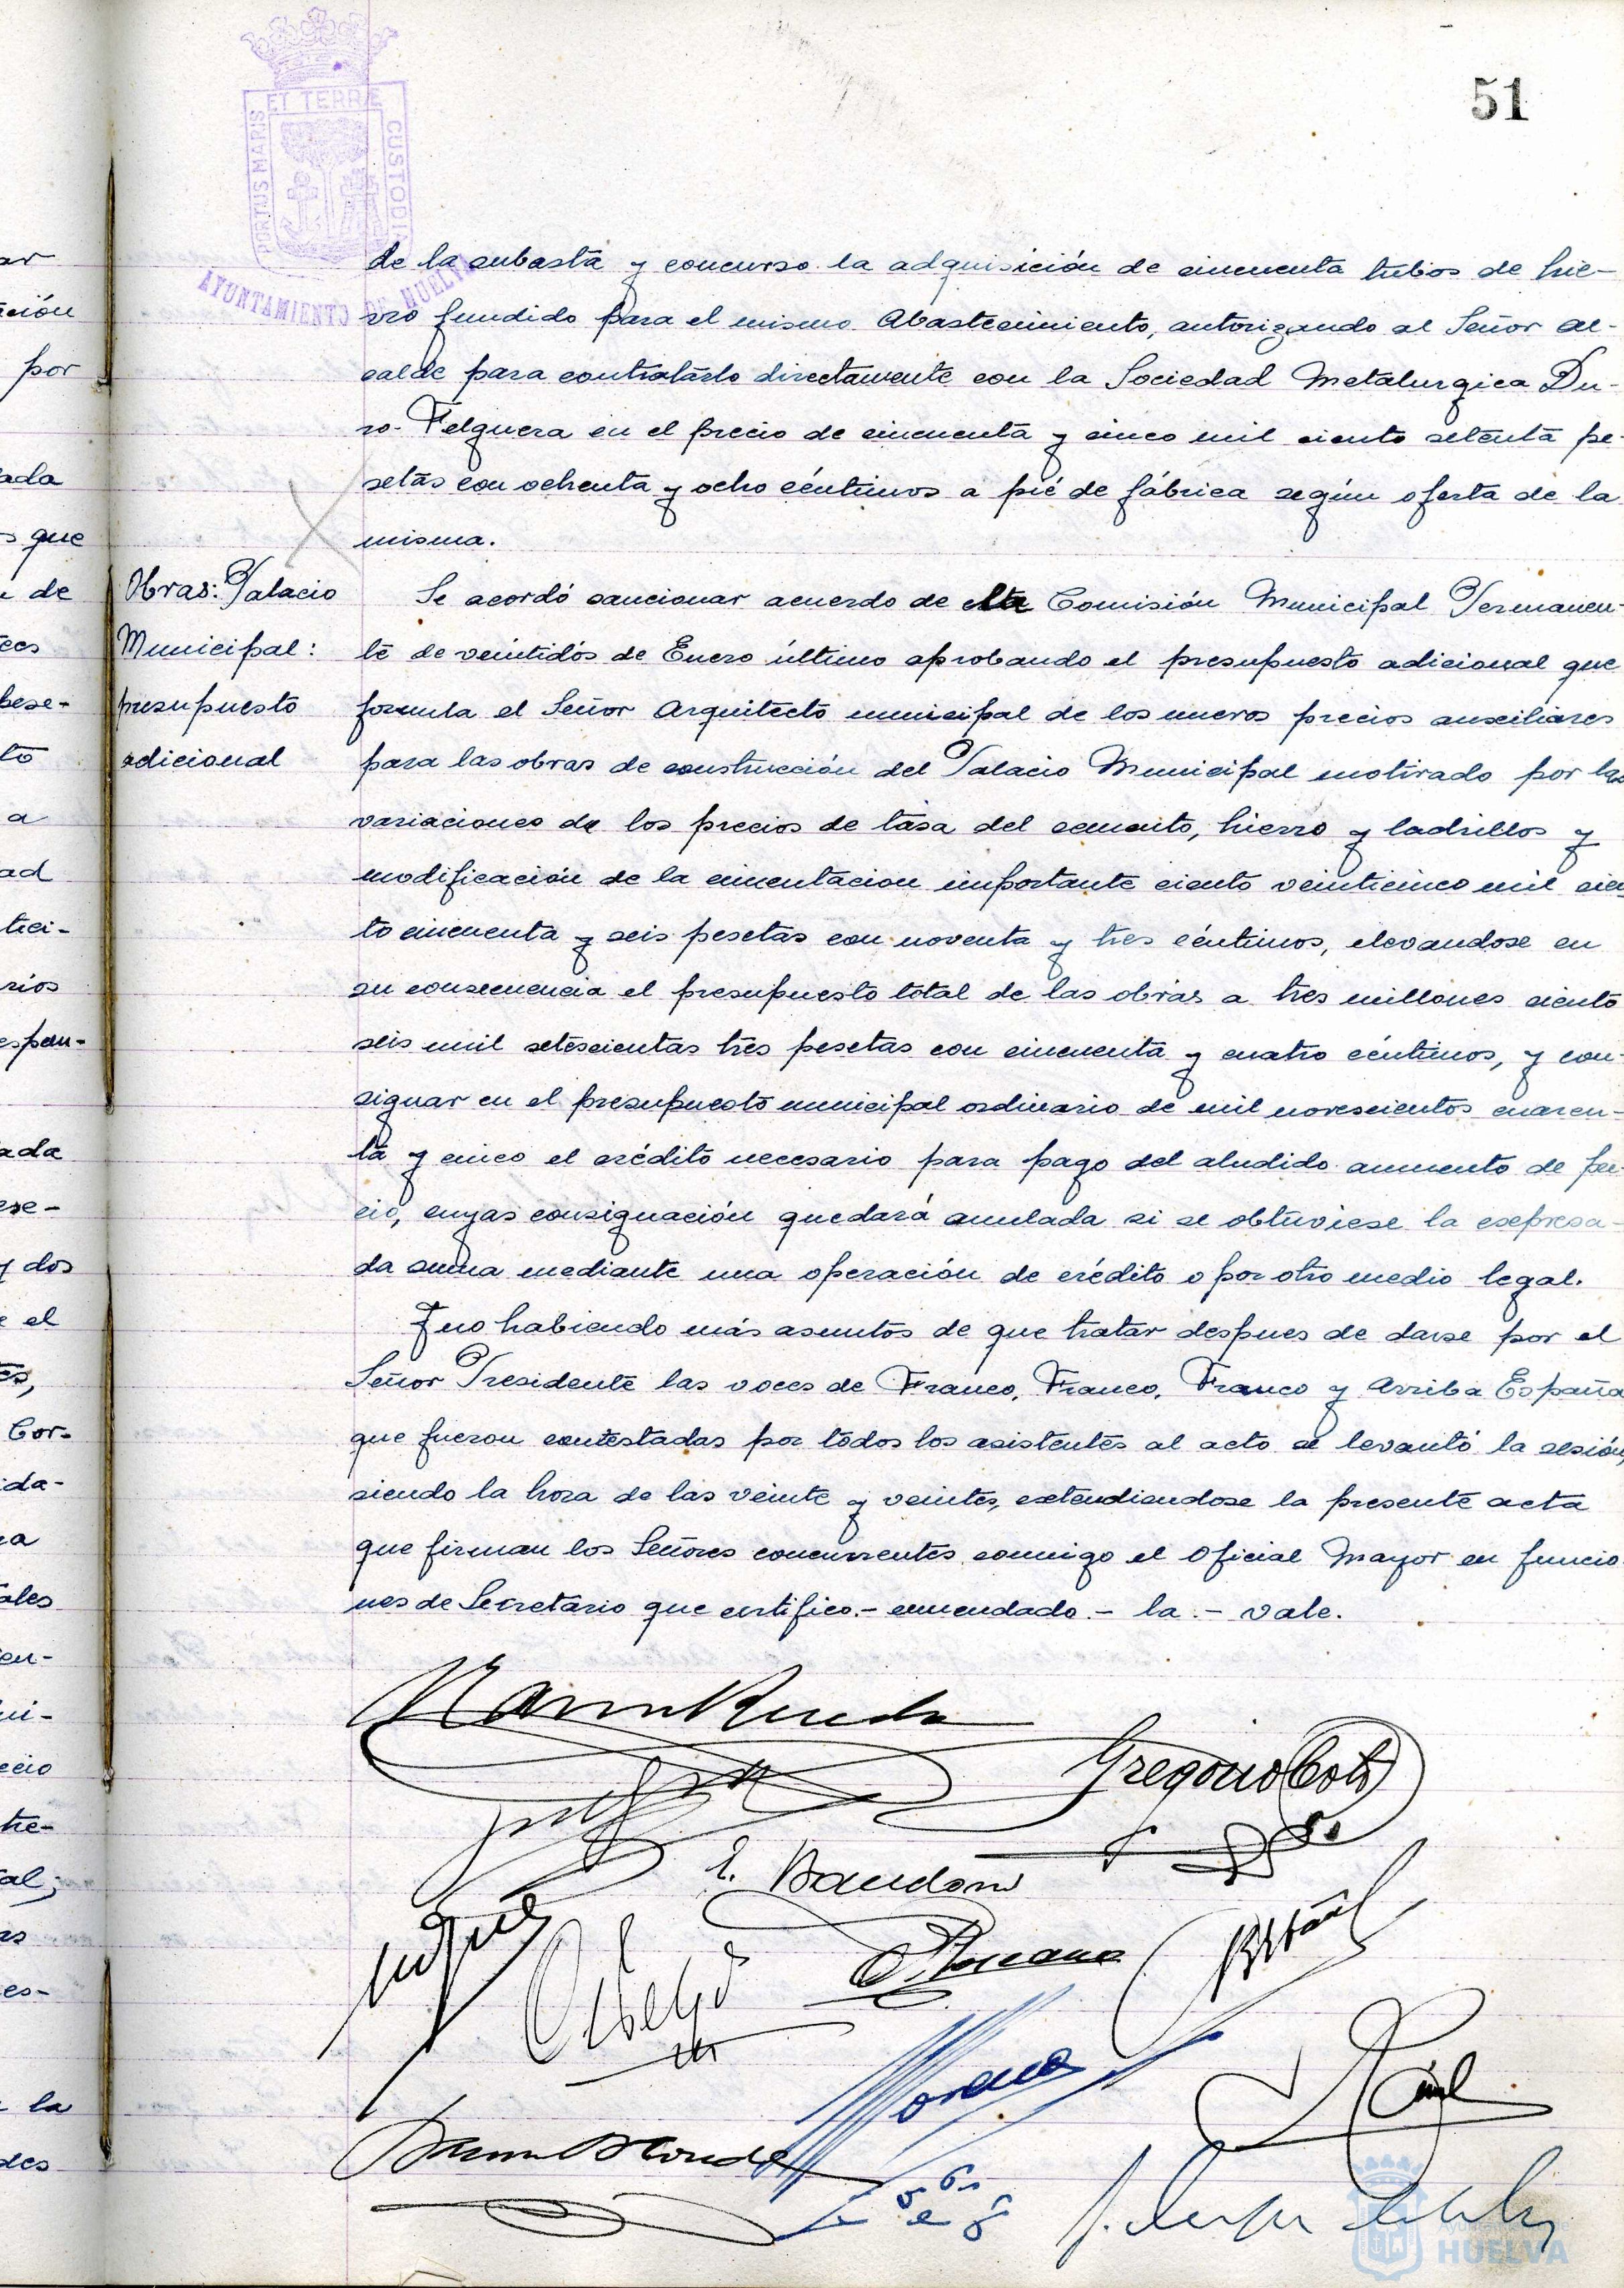 51
PORTUS MARIS ET TERRE CUSTODIA
AYUNTAMIENTO DE HUELVA
de la subasta y concurso la adquisición de cincuenta tubos de hie-
rro fundido para el mismo Abastecimiento, autorizando al Señor Al-
calde para contratarlo directamente con la Sociedad Metalurgica Du-
ro-Felguera en el precio de cincuenta y cinco mil ciento setenta pe-
setas con ochenta y ocho céntimos a pié de fábrica según oferta de la
misma.
Obras: Palacio
Municipal:
presupuesto
adicional
Se acordó sancionar acuerdo de la Comisión Municipal Permanen-
te de veintidós de Enero último aprobando el presupuesto adicional que
formula el Señor Arquitecto municipal de los nuevos precios auxiliares
para las obras de construcción del Palacio Municipal motivado por las
variaciones de los precios de tasa del cemento, hierro y ladrillos y
modificación de la cimentacion importante ciento veinticinco mil cien
to cincuenta y seis pesetas con noventa y tres céntimos, elevandose en
su consecuencia el presupuesto total de las obras a tres millones ciento
seis mil setescientas tres pesetas con cincuenta y cuatro céntimos, y con-
signar en el presupuesto municipal ordinario de mil novescientos cuaren-
ta y cinco el crédito necesario para pago del aludido aumento de pre-
cio, cuyas consignación quedará anulada si se obtuviese la expresa-
da suma mediante una operación de crédito o por otro medio legal.
Y no habiendo más asuntos de que tratar despues de darse por el
Señor Presidente las voces de Franco, Franco, Franco y Arriba España
que fueron contestadas por todos los asistentes al acto se levantó la sesión,
siendo la hora de las veinte y veintes, extendiendose la presente acta
que firman los Señores concurrentes conmigo el Oficial Mayor en funcio
nes de Secretario que certifico.- enmendado.- la.- vale.
Gregorio
E.
Ayuntamiento de
HUELVA
ar
ción
por
ada
s que
de
bese-
to
a
ad
tici-
rios
espon-
ada
ese-
y dos
e el
Cor-
ida-
ales
en-
ecio
tre-
al;
es-
la
des